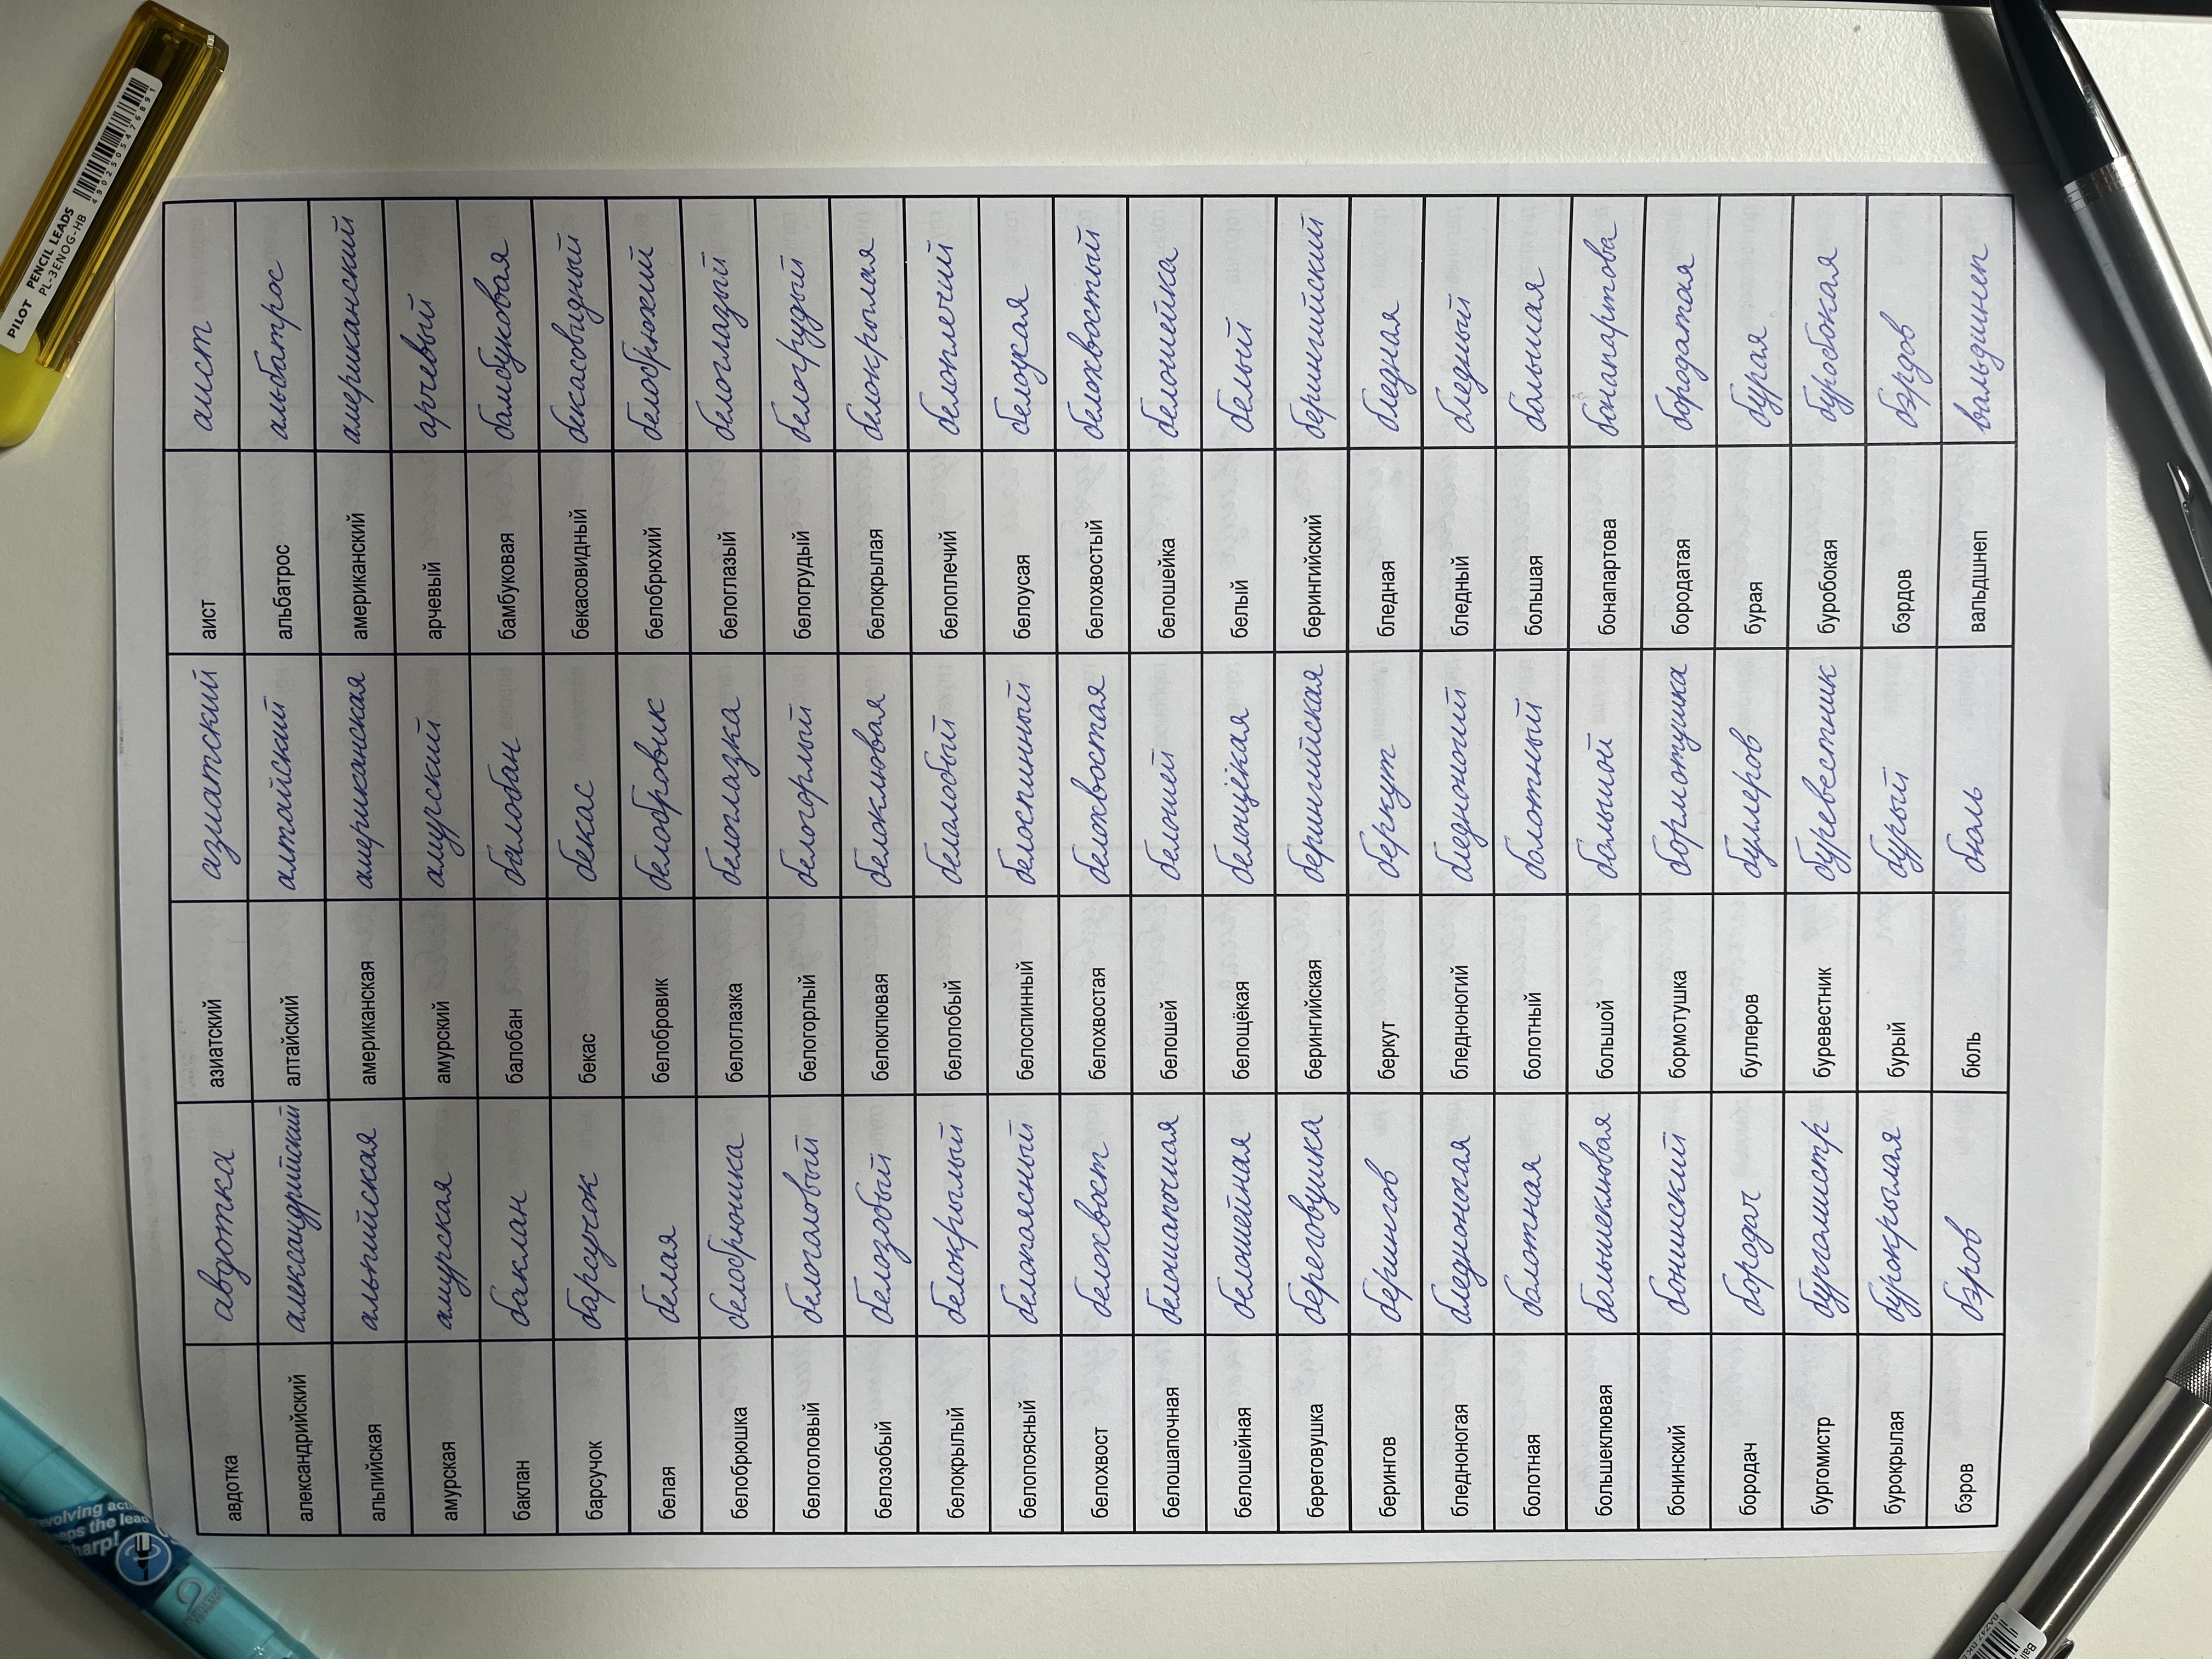 evolving actu
keeps the lead
sharp!
PILOT PENCIL LEADS
PL-3ENOG-HB
4902505476891
авдотка авдотка азиатский азиатский аист аист
александрийский александрийский алтайский алтайский альбатрос альбатрос
альпийская альпийская американская американская американский американский
амурская амурская амурский амурский арчевый арчевый
баклан баклан балобан балобан бамбуковая бамбуковая
барсучок барсучок бекас бекас бекасовидный бекасовидный
белая белая белобровик белобровик белобрюхий белобрюхий
белобрюшка белобрюшка белоглазка белоглазка белоглазый белоглазый
белоголовый белоголовый белогорлый белогорлый белогрудый белогрудый
белозобый белозобый белоклювая белоклювая белокрылая белокрылая
белокрылый белокрылый белолобый белолобый белоплечий белоплечий
белопоясный белопоясный белоспинный белоспинный белоусая белоусая
белохвост белохвост белохвостая белохвостая белохвостый белохвостый
белошапочная белошапочная белошей белошей белошейка белошейка
белошейная белошейная белощёкая белощёкая белый белый
береговушка береговушка берингийская берингийская берингийский берингийский
берингов берингов беркут беркут бледная бледная
бледноногая бледноногая бледноногий бледноногий бледный бледный
болотная болотная болотный болотный большая большая
большеклювая большеклювая большой большой бонапартова бонапартова
бонинский бонинский бормотушка бормотушка бородатая бородатая
бородач бородач буллеров буллеров бурая бурая
бургомистр бургомистр буревестник буревестник буробокая буробокая
бурокрылая бурокрылая бурый бурый бэрдов бэрдов
бэров бэров бюль бюль вальдшнеп вальдшнеп